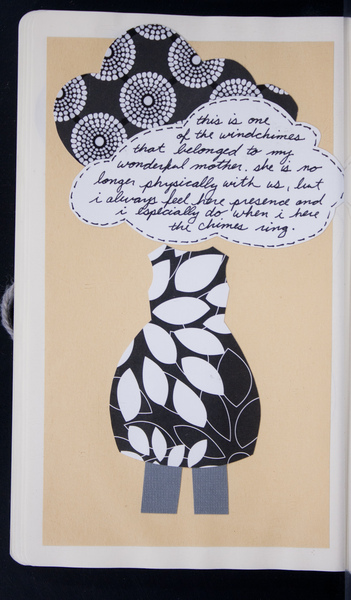 this is one
of the windchimes
that belonged to my
wonderful mother. she is no
longer physically with us, but
i always feel here presence and
i especially do when i here
the chimes ring.